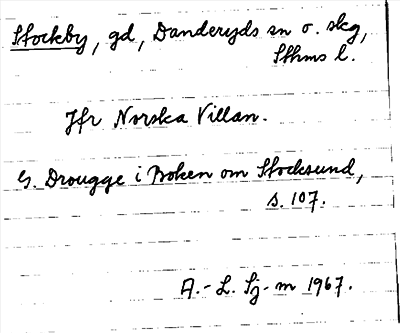 Stockby, gd, Danderyds sn o. skg,
Sthms l.
Jfr Norska Villan.
G. Drougge i Boken om Stocksund,
s. 107.
A.-L. Sj-m 1967.